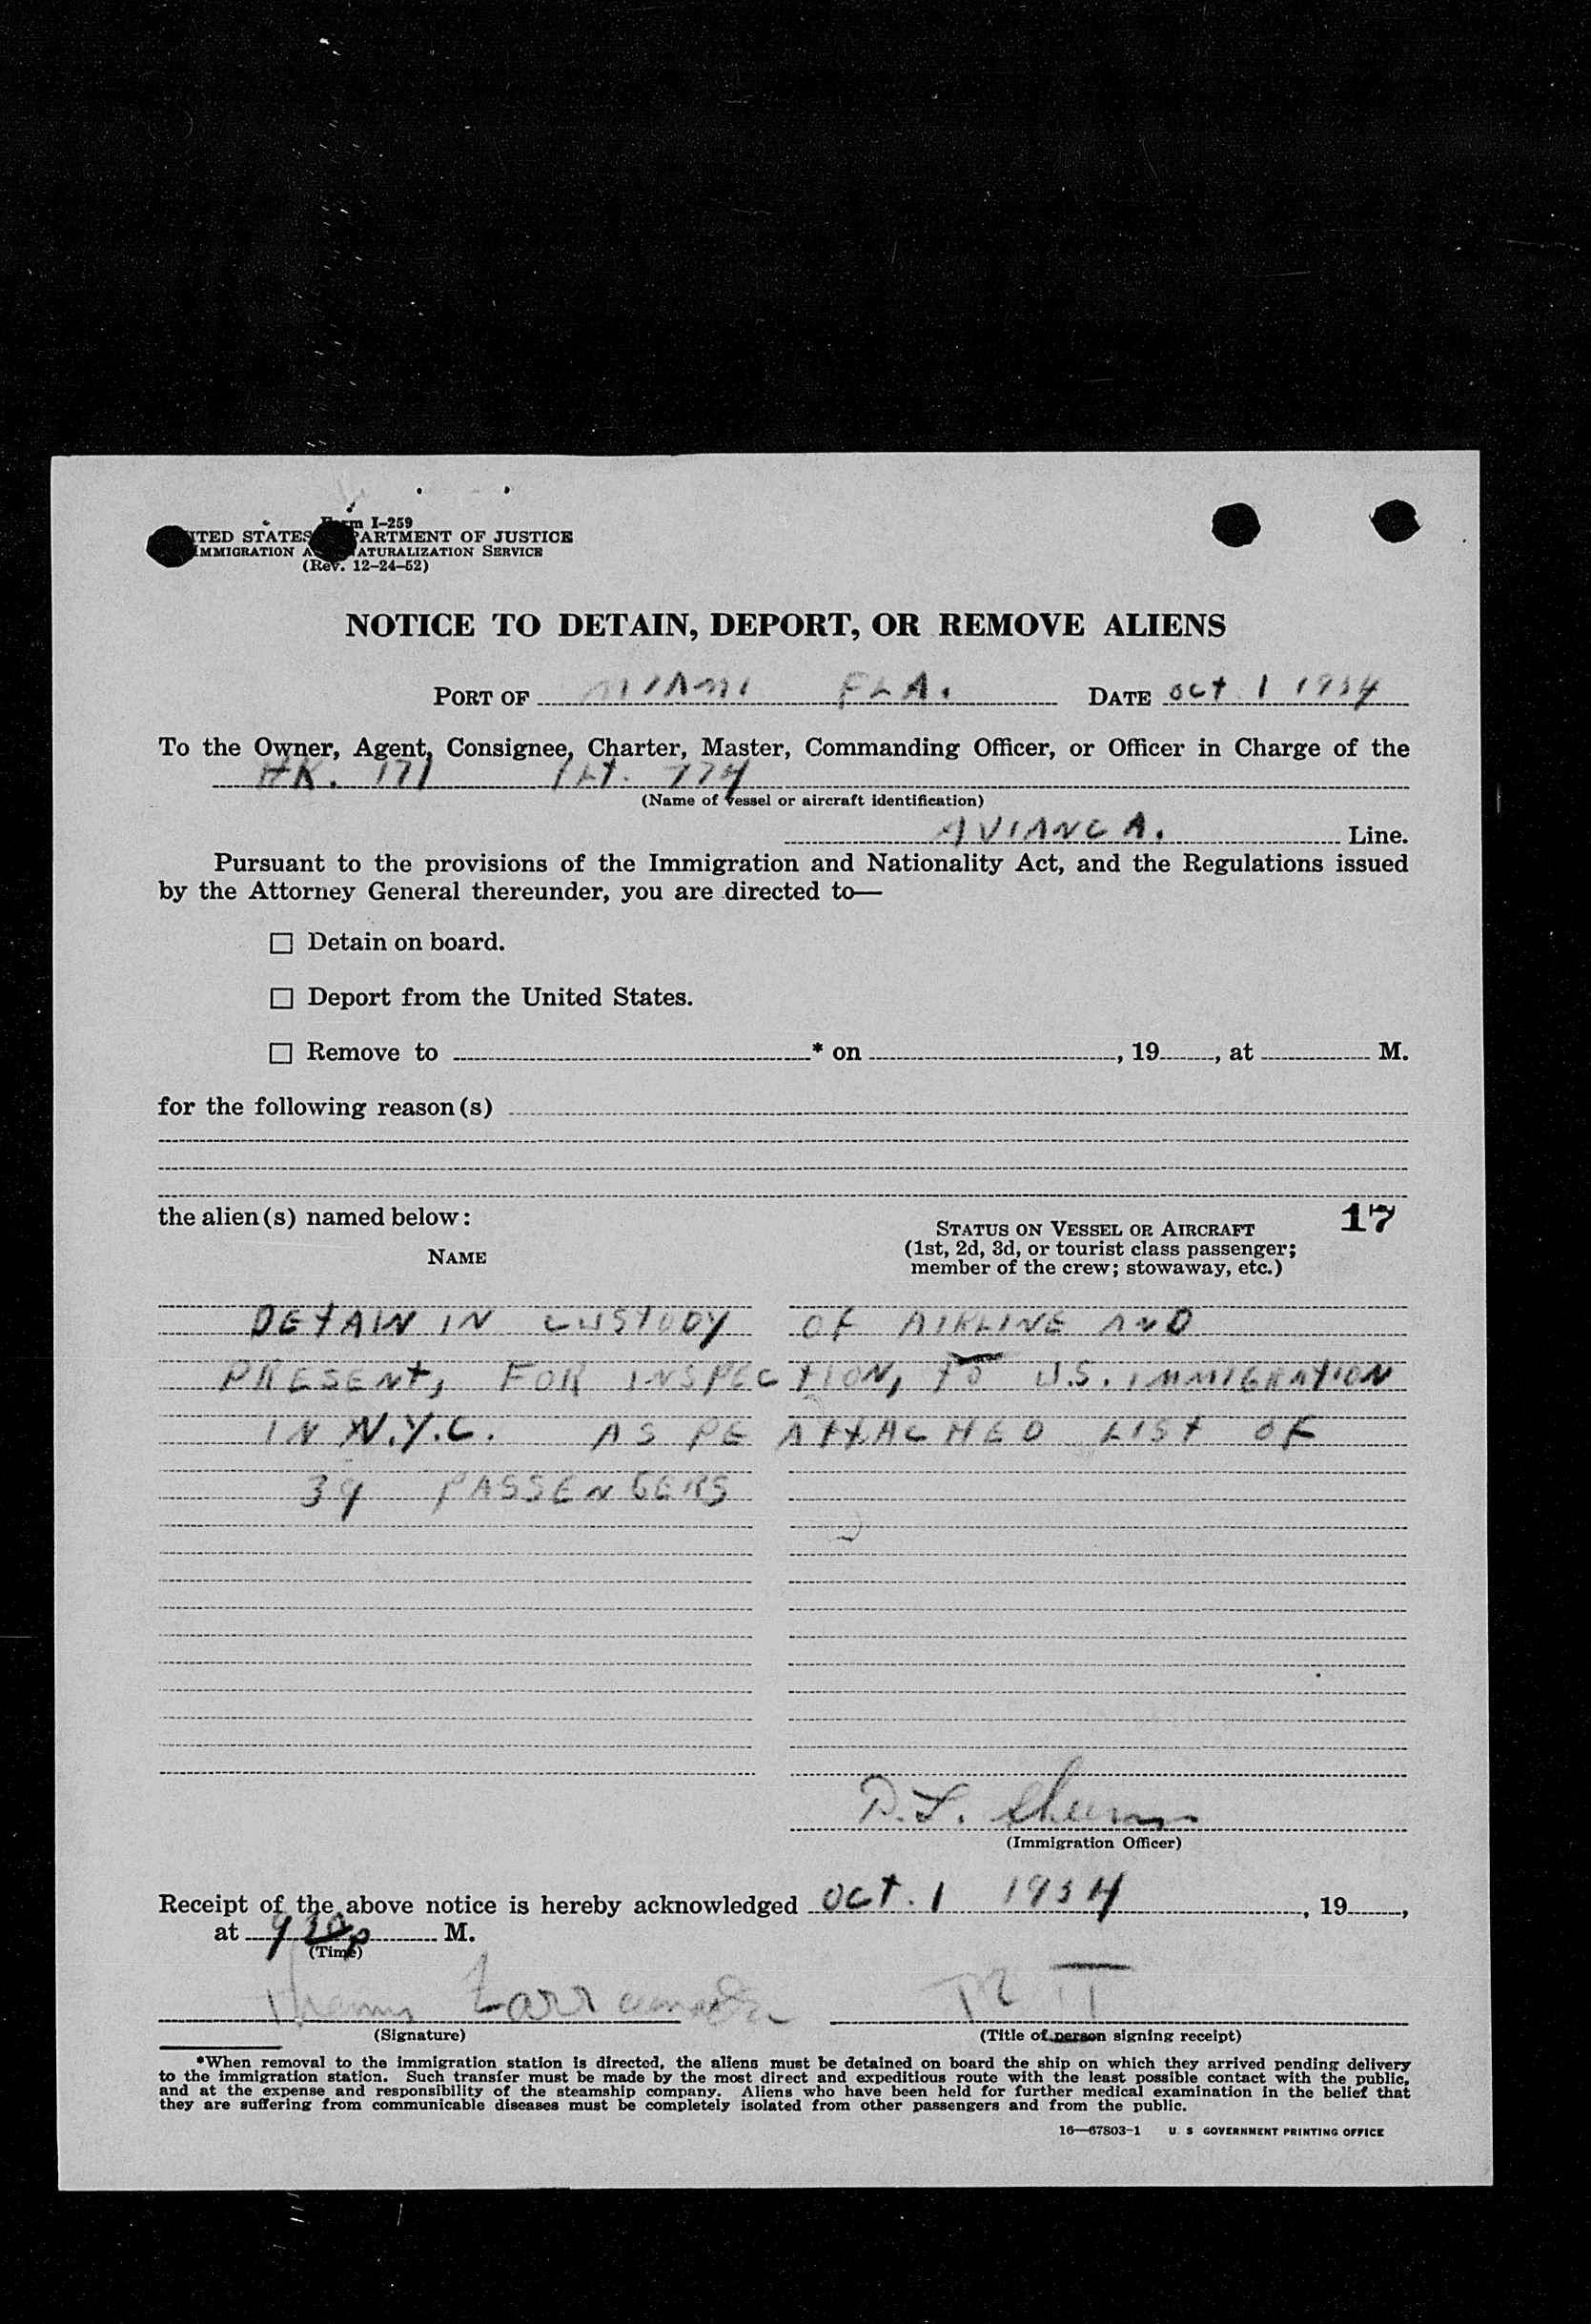 Form I-259
UNITED STATES DEPARTMENT OF JUSTICE
IMMIGRATION AND NATURALIZATION SERVICE
(Rev. 12-24-52)
NOTICE TO DETAIN, DEPORT, OR REMOVE ALIENS
PORT OF MIAMI FLA. DATE OCT 1 1954
To the Owner, Agent, Consignee, Charter, Master, Commanding Officer, or Officer in Charge of the
HK. 171 774
(Name of vessel or aircraft identification)
AVIANCA. Line.
Pursuant to the provisions of the Immigration and Nationality Act, and the Regulations issued
by the Attorney General thereunder, you are directed to—
☐ Detain on board.
☐ Deport from the United States.
☐ Remove to * on , 19 , at M.
for the following reason(s)
the alien(s) named below:
17
NAME
STATUS ON VESSEL OR AIRCRAFT
(1st, 2d, 3d, or tourist class passenger;
member of the crew; stowaway, etc.)
DETAIN IN CUSTODY OF AIRLINE AND
PRESENT, FOR INSPECTION, TO U.S. IMMIGRATION
IN N.Y.C. AS PE ATTACHED LIST OF
39 PASSENGERS
D.L.
(Immigration Officer)
Receipt of the above notice is hereby acknowledged OCT. 1 1954 , 19 ,
at 930p M.
(Time)
(Signature)
(Title of person signing receipt)
*When removal to the immigration station is directed, the aliens must be detained on board the ship on which they arrived pending delivery
to the immigration station. Such transfer must be made by the most direct and expeditious route with the least possible contact with the public,
and at the expense and responsibility of the steamship company. Aliens who have been held for further medical examination in the belief that
they are suffering from communicable diseases must be completely isolated from other passengers and from the public.
16—67803-1 U. S. GOVERNMENT PRINTING OFFICE